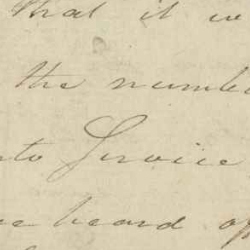 that it we
the numbe
nto Service
ne heard of